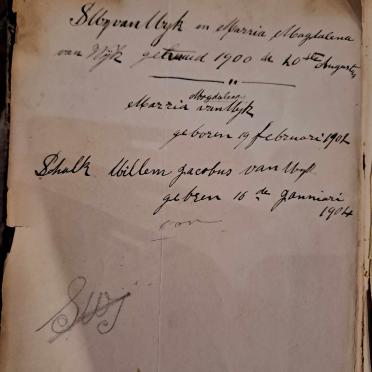 van Wyk en Marria Magdalena
van Wijk getraud 1900 de 20ste Augustus
"
Magdalena
Marria van Wyk
geboren 19 februari 190
Schalk Willem Jacobus van Wyk
geboren 16 de Janniari
1904
SWJ